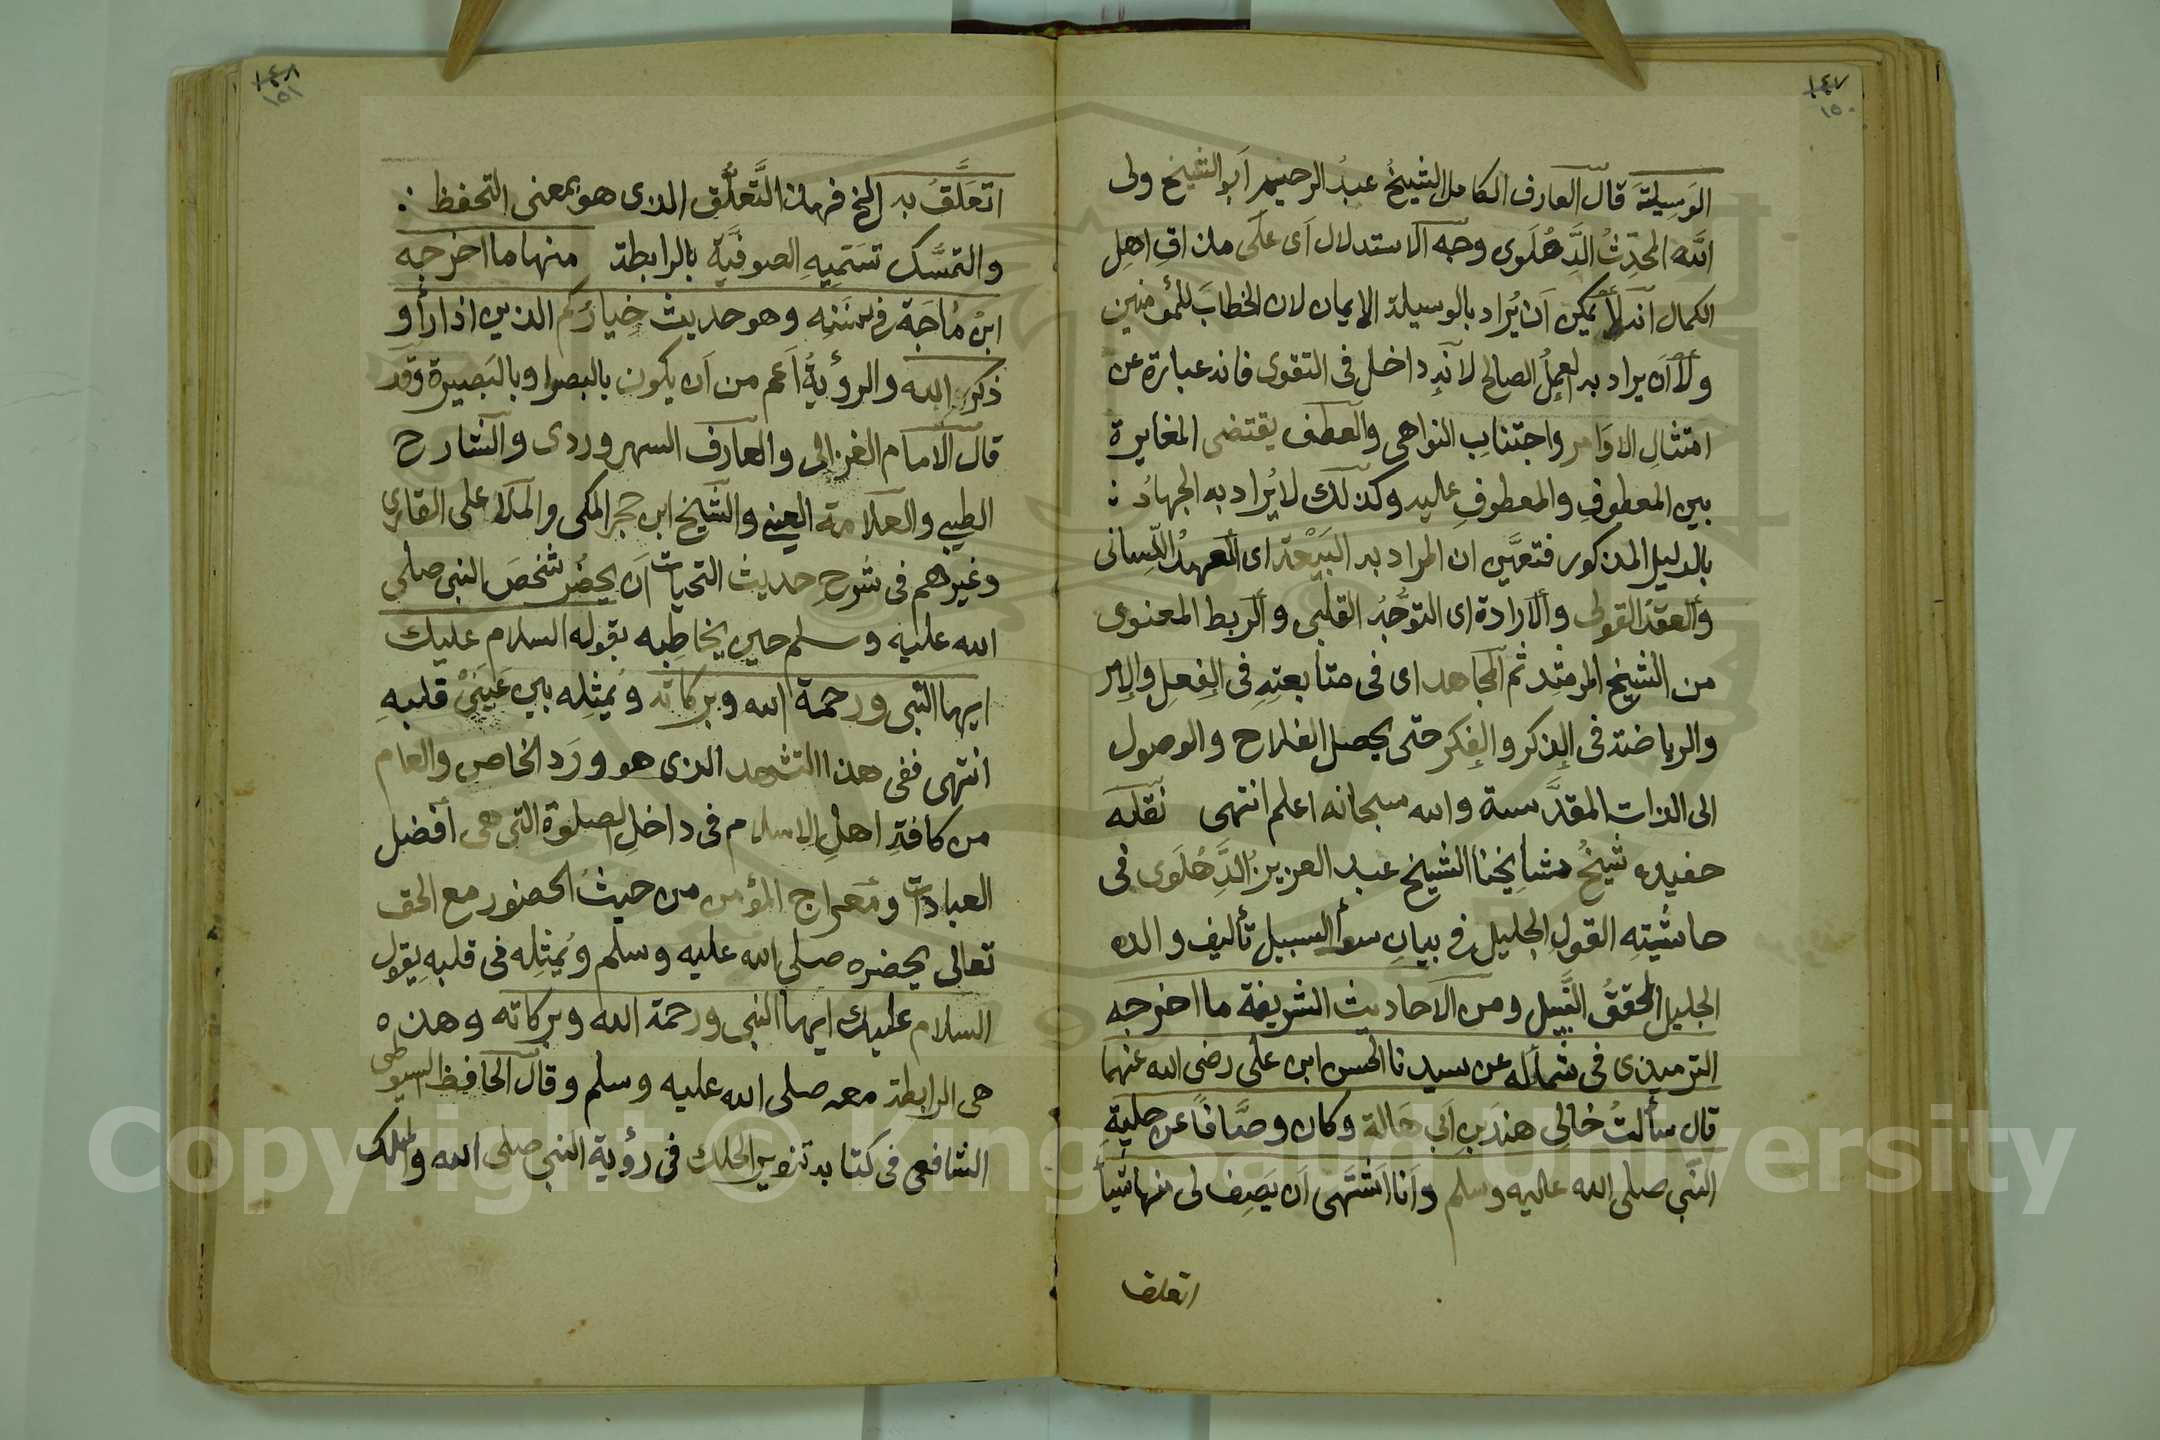 ١٤٧
١٥٠
الوَسِيلَةَ قال العارف الكامل الشيخُ عبدُ الرحيم اَبو الشيخ ولى
الله المحدِّثُ الدِّهْلَوى وجه الاستدلال اَى عَلَى مذاقِ اهلِ
الكمال انه لا يُمكِن اَن يُراد بالوسيلة الإيمان لان الخطابَ للمؤمنين
ولا اَن يراد به العملُ الصالح لانه داخل فى التقوى فانه عبارة عن
امتثالِ الاوَامر واجتنابِ النواهى والعطف يقتضى المغايرة
بين المعطوفِ والمعطوفِ عليه وكذلك لا يُراد به الجهادُ :
بالدليل المذكور فتعيَّن ان المراد به البَيْعَة اى العهدُ اللِّسانى
والعقدُ القولى والارادة اى التوجُّهُ القلبى والربط المعنوى
من الشيخ المرشد ثم المجاهد اى فى متابعتِهِ فى الفِعلِ والامر
والرياضة فى الذِكر والفِكر حتى يحصل الفلاح والوصول
الى الذات المقدَّسة والله سبحانه اعلم انتهى نقله
حفيده شيخُ مشايخنا الشيخ عبد العزيز الدِّهْلَوى فى
حاشيتِهِ القولِ الجليل فى بيانِ سوأ السبيل تأليف والده
الجليل المحققُ النَّبيل ومن الاحاديث الشريفة ما اخرجه
الترمِذى فى شمائله عن سيدنا الحسن ابن على رضى الله عنهما
قال سألتُ خالى هندَ بن اَبي هَالة وكان وصَّافًا عن حليةِ
النَّبي صلى الله عليه وسلم واَنا اَشتَهى اَن يَصِف لى منها شيأً
اتعلق
١٤٨
١٥١
اتعَلَّقُ به الخ فهذا التَّعَلُّق الذى هو بمعنى التحفظ :
والتمسَّك تسَمّيهِ الصوفيَّة بالرابطة منها ما اخرجه
ابنُ مَاجَة فى سَنَنِه وهو حديث خِيارُكم الذين اذا رأوا
ذكر الله والرؤيةُ اَعم من اَن يكون بالبصر او بالبَصيرة وقد
قال الامام الغزالى والعارف السهروردى والشارح
الطيبى والعلامة العينى والشيخ ابن حجر المكى والملا على القارى
وغيرهم فى شرحِ حديث التحيات اَن يحضُر شخصَ النبى صلى
الله عليه وسلم حين يخاطِبه بقوله السلام عليك
ايها النَّبى ورحمة الله وبَركاته ويُمثِله بين عَينَىْ قلبهِ
انتهى ففى هذا التشهد الذى هو ورَد الخاص والعام
من كافةِ اهلِ الاسلام فى داخلِ الصلوة التى هى اَفضل
العبادات ومَعراج المؤمن من حيثُ الحضور مع الحق
تعالى يحضره صلى الله عليه وسلم ويُمثِله فى قلبه يقول
السلام عليك ايها النبى ورحمة الله وبركاته وهذه
هى الرابطة معه صلى الله عليه وسلم وقال الحافِظ السيوطى
الشافعى فى كتابه تنوير الحلك فى رؤية النبى صلى الله والملك
Copyright © King Saud University